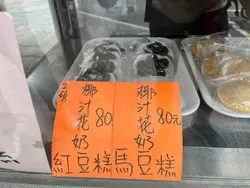 椰汁花奶
80
紅豆糕
椰汁花奶
80元
馬豆糕